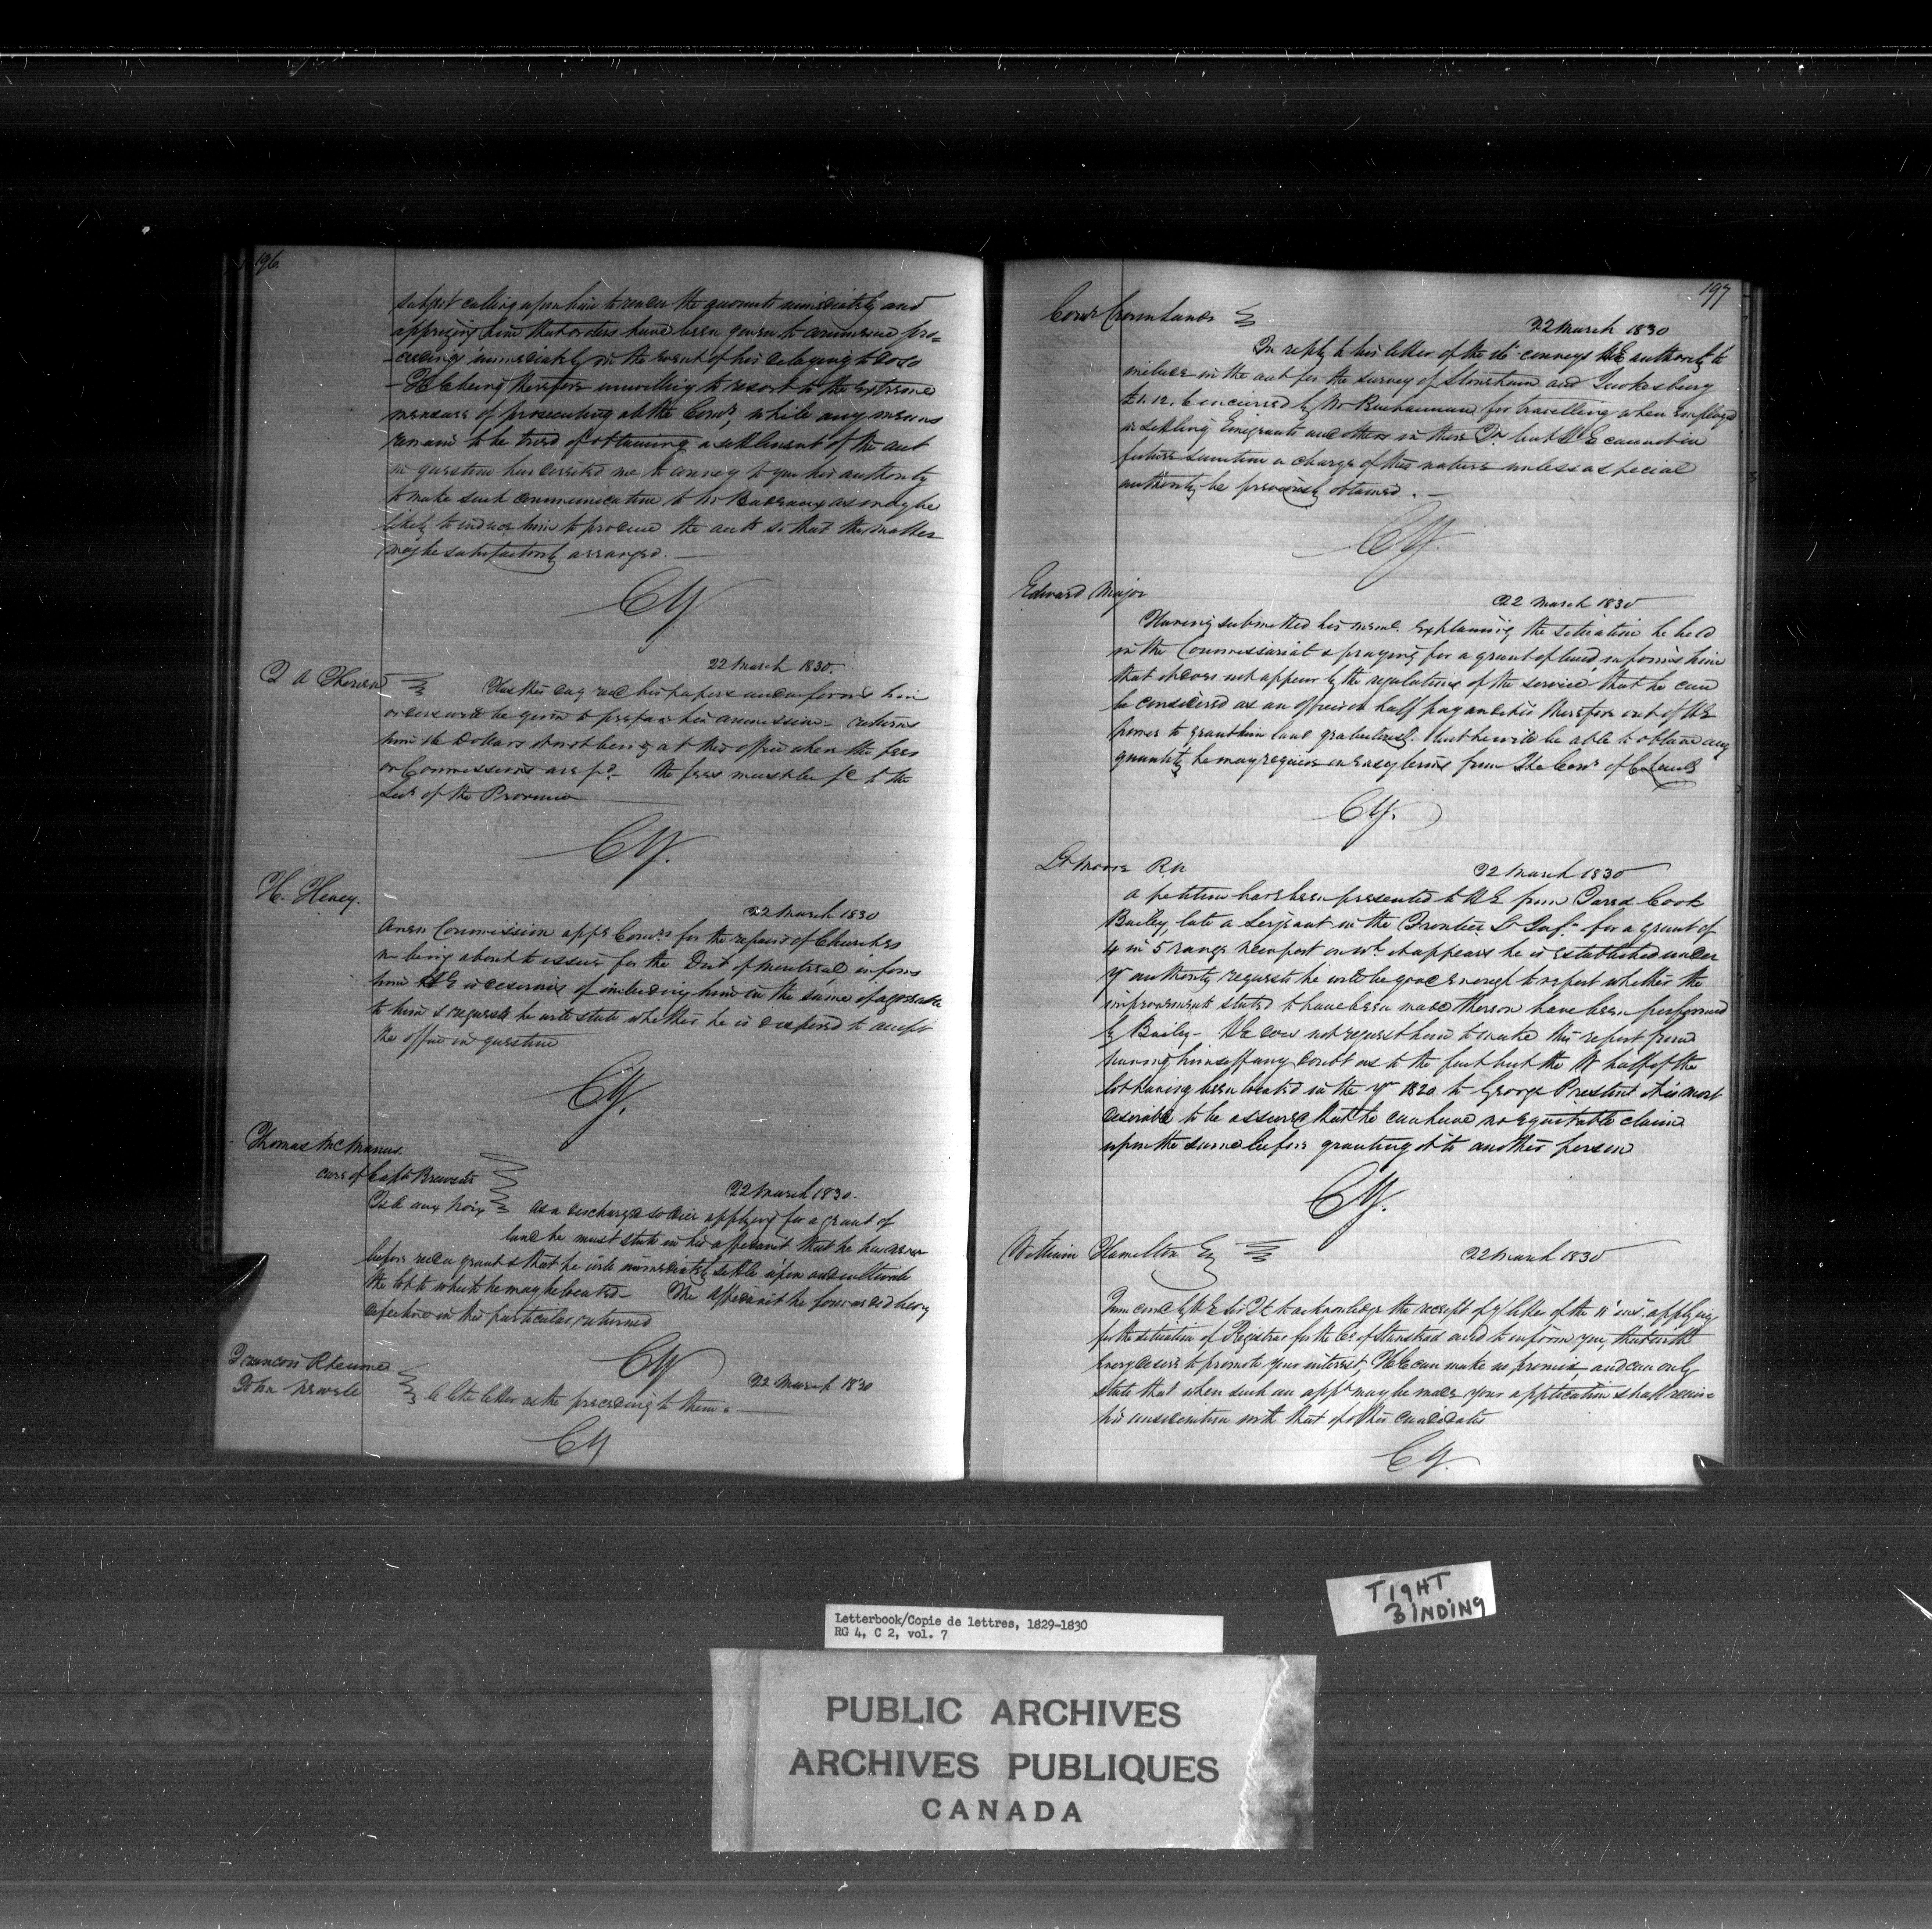 196
subject calling upon him to render the accounts immediately and
apprizing him that orders have been given to commence pro-
-ceedings immediately in the event of his delaying to do so
- HE being therefore unwilling to resort to the extreme
measure of prosecuting at the Comr, while any means
remain to be tried of obtaining a settlement of the acct
in question has desired me to convey to you his authority
to make such communication to Mr Badeaux as may be
likely to induce him to procure the accts so that the matter
may be satisfactorily arranged. —
CY
22 March 1830.
J A Therien
Has this day recd his papers and informs him
orders will be given to prepare his commission - returns
him 16 Dollars it not being at this office when the fees
on Commissions are pd - the fees must be pd to the
Secy of the Province
CY.
H. Heney.
22 March 1830
A new Commission appg Comrs for the repairs of Churches
being about to issue for the Dist of Montreal informs
him HE is desirous of including him in the same if agreeable
to him & requests he will state whether he is disposed to accept
the office in question
CY.
Thomas McManus
care of Captn Brewster
Isle aux Noix
22 March 1830.
As a discharged soldier applying for a grant of
land he must state in his affidavit that he has never
before recd a grant & that he will immediately settle upon and cultivate
the lot to which he may be located - The affidavit he forwarded being
defective in this particular, returned
CY
Francois Rheaume
John Newele
22 March 1830
A like letter as the preceding to them. —
CY
197
Comr Crown Lands
22 March 1830
In reply to his letter of the conveys HE authority to
include in the act for the survey of Stoneham and Tewkesbury
£1. 12. 6 incurred by Mr Buchannan for travelling when employed
in settling Emigrants and others in these Tps but HE cannot in
future sanction a charge of this nature unless a special
authority be previously obtained. —
CY.
Edward Major
22 March 1830
Having submitted his meml. explaining the situation he held
in the Commissariat & praying for a grant of land, informs him
that it does not appear by the regulations of the service that he can
be considered as an officer on half pay and it is therefore out of HE
power to grant him land gratuitously. but he will be able to obtain any
quantity he may require on easy terms from the Comr of C Lands
CY.
Lt Moore RN
22 March 1830
A petition has been presented to HE from Jared Cook
Bailey, late a Serjeant in the Frontier Lt Infy - for a grant of
4 in 5 range Newport on wh. it appears he is established under
yr authority requests he will be good enough to report whether the
improvements stated to have been made thereon have been performed
by Bailey - HE does not request him to make this report from
having himself any doubt as to the fact but the W half of the
lot having been located in the yr 1820 to George Prestent it is most
desirable to be assured that he can have no equitable claim
upon the same before granting it to another person
CY.
William Hamilton Esq
22 March 1830
I am comd by HE Sir JK to acknowledge the receipt of yr letter of the 11 inst. applying
for the situation of Registrar for the Co. of Stanstead and to inform you, that with
every desire to promote your interest, HE can make no promise, and can only
state that when such an appt may be made your application shall receive
his consideration with that of other candidates
CY.
TIGHT
BINDING
Letterbook/Copie de lettres, 1829-1830
RG 4, C 2, vol. 7
PUBLIC ARCHIVES
ARCHIVES PUBLIQUES
CANADA